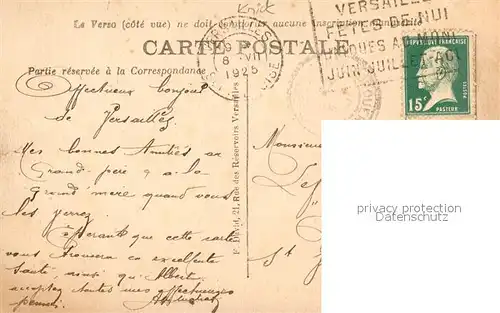 Knick
Le Verso (côté vue) ne doit comporter aucune inscription
CARTE POSTALE
VERSAILLES
8 - VII
1925
VERSAILLE
FETES DE NUI
UNIQUES AU MONDE
JUIN JUILLET AO
REPUBLIQUE FRANCAISE
15c
POSTES
PASTEUR
Partie réservée à la Correspondance
Affectueux bonjour
de Versailles
Mes bonnes Amitiés au
Grand père & a la
Grand'mère quand vous
les verrez
Espérant que cette carte
vous trouvera en excellente
santé, ainsi qu'Albert
acceptez toutes mes affectueuses
pensées
F. David, 21, Rue des Réservoirs Versailles
Monsieur
St
privacy protection
Datenschutz